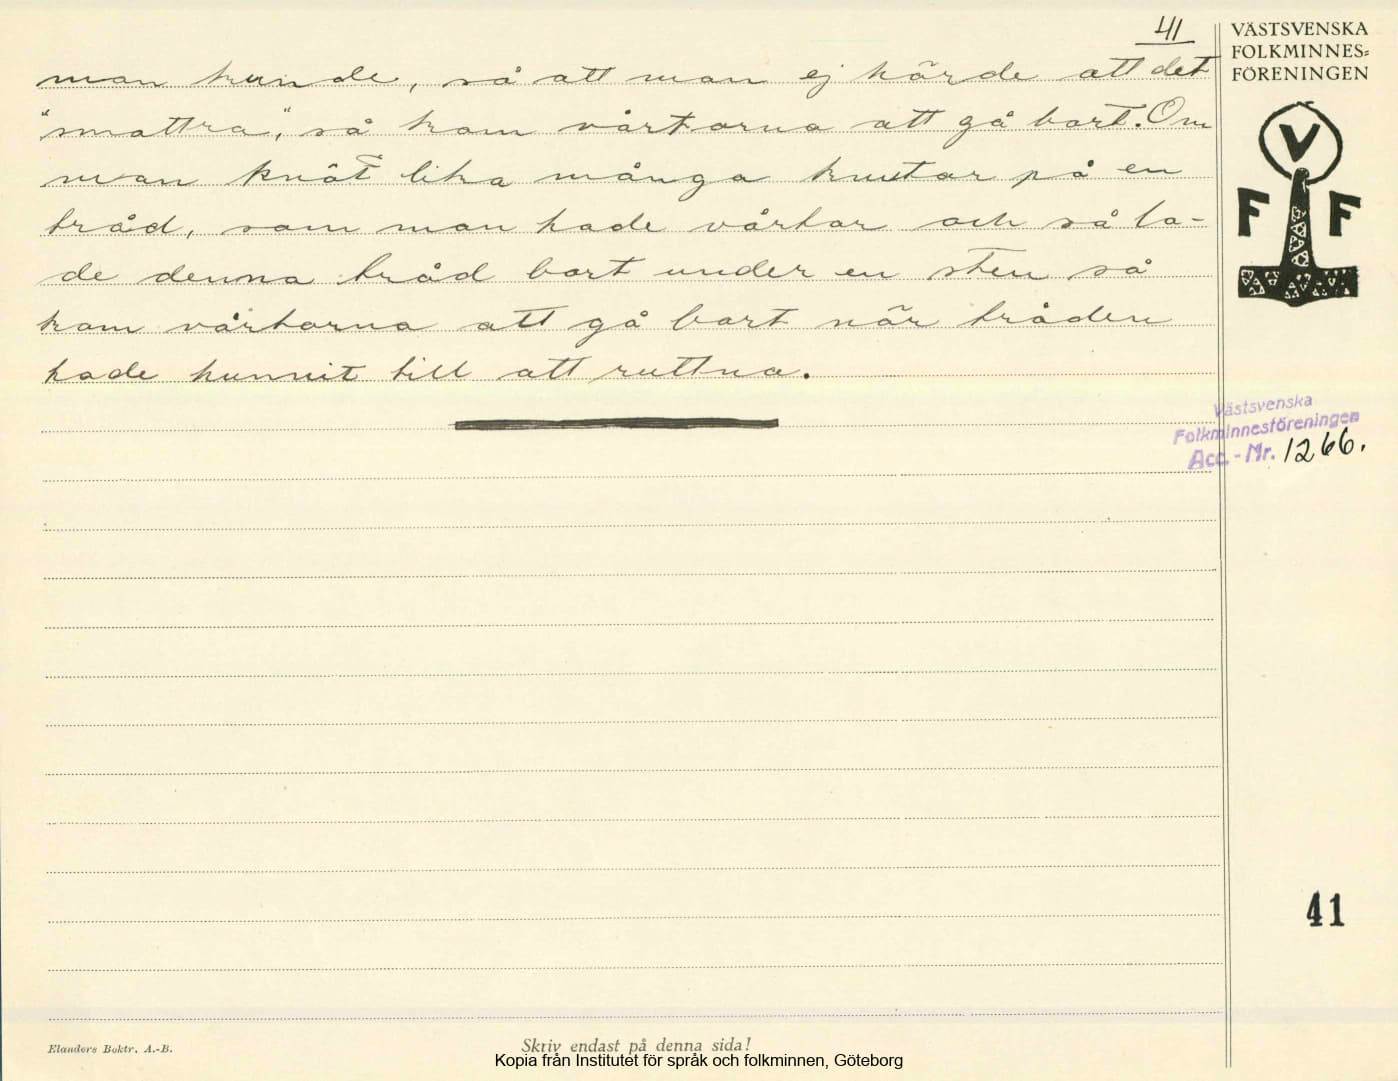 41
man kunde, så att man ej hörde att det
"smattra", så kom vårtorna att gå bort. Om
man knöt lika många knutar på en
tråd, som man hade vårtor och så la-
de denna tråd bort under en sten så
kom vårtorna att gå bort när tråden
hade hunnit till att ruttna.
VÄSTSVENSKA
FOLKMINNES-
FÖRENINGEN
V
F F
Västsvenska
Folkminnesföreningen
Acc.-Nr. 1266.
41
Elanders Boktr. A.-B.
Skriv endast på denna sida!
Kopia från Institutet för språk och folkminnen, Göteborg